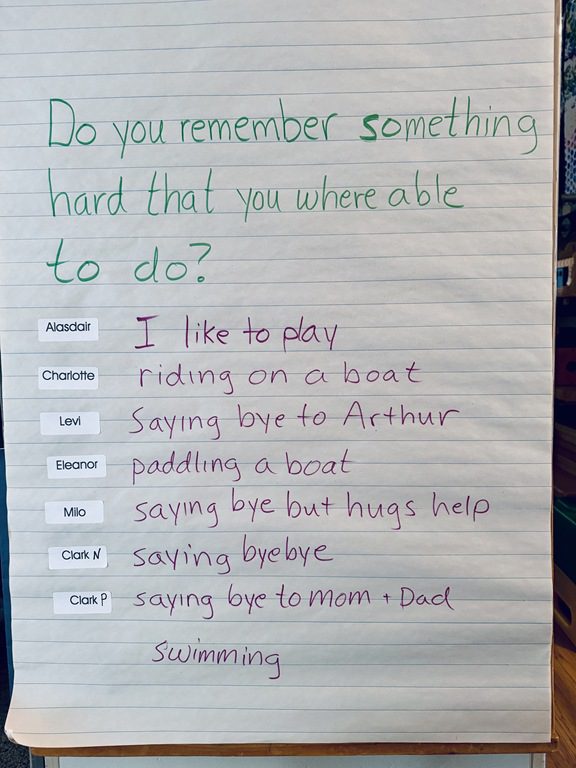 Do you remember something
hard that you where able
to do?
Alasdair I like to play
Charlotte riding on a boat
Levi Saying bye to Arthur
Eleanor paddling a boat
Milo saying bye but hugs help
Clark N saying byebye
Clark P saying bye to mom + Dad
swimming